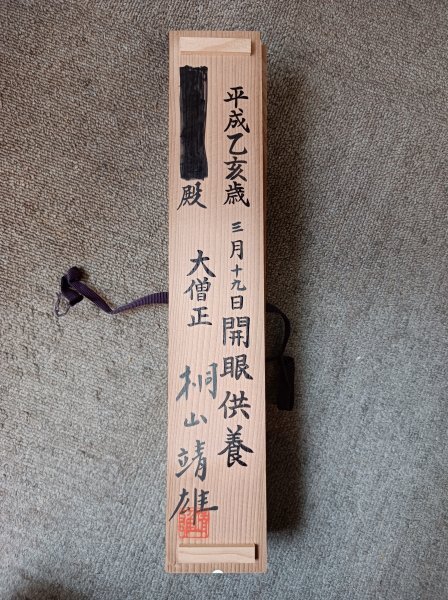 平成乙亥歳 三月十九日 開眼供養
殿
大僧正 桐山靖雄